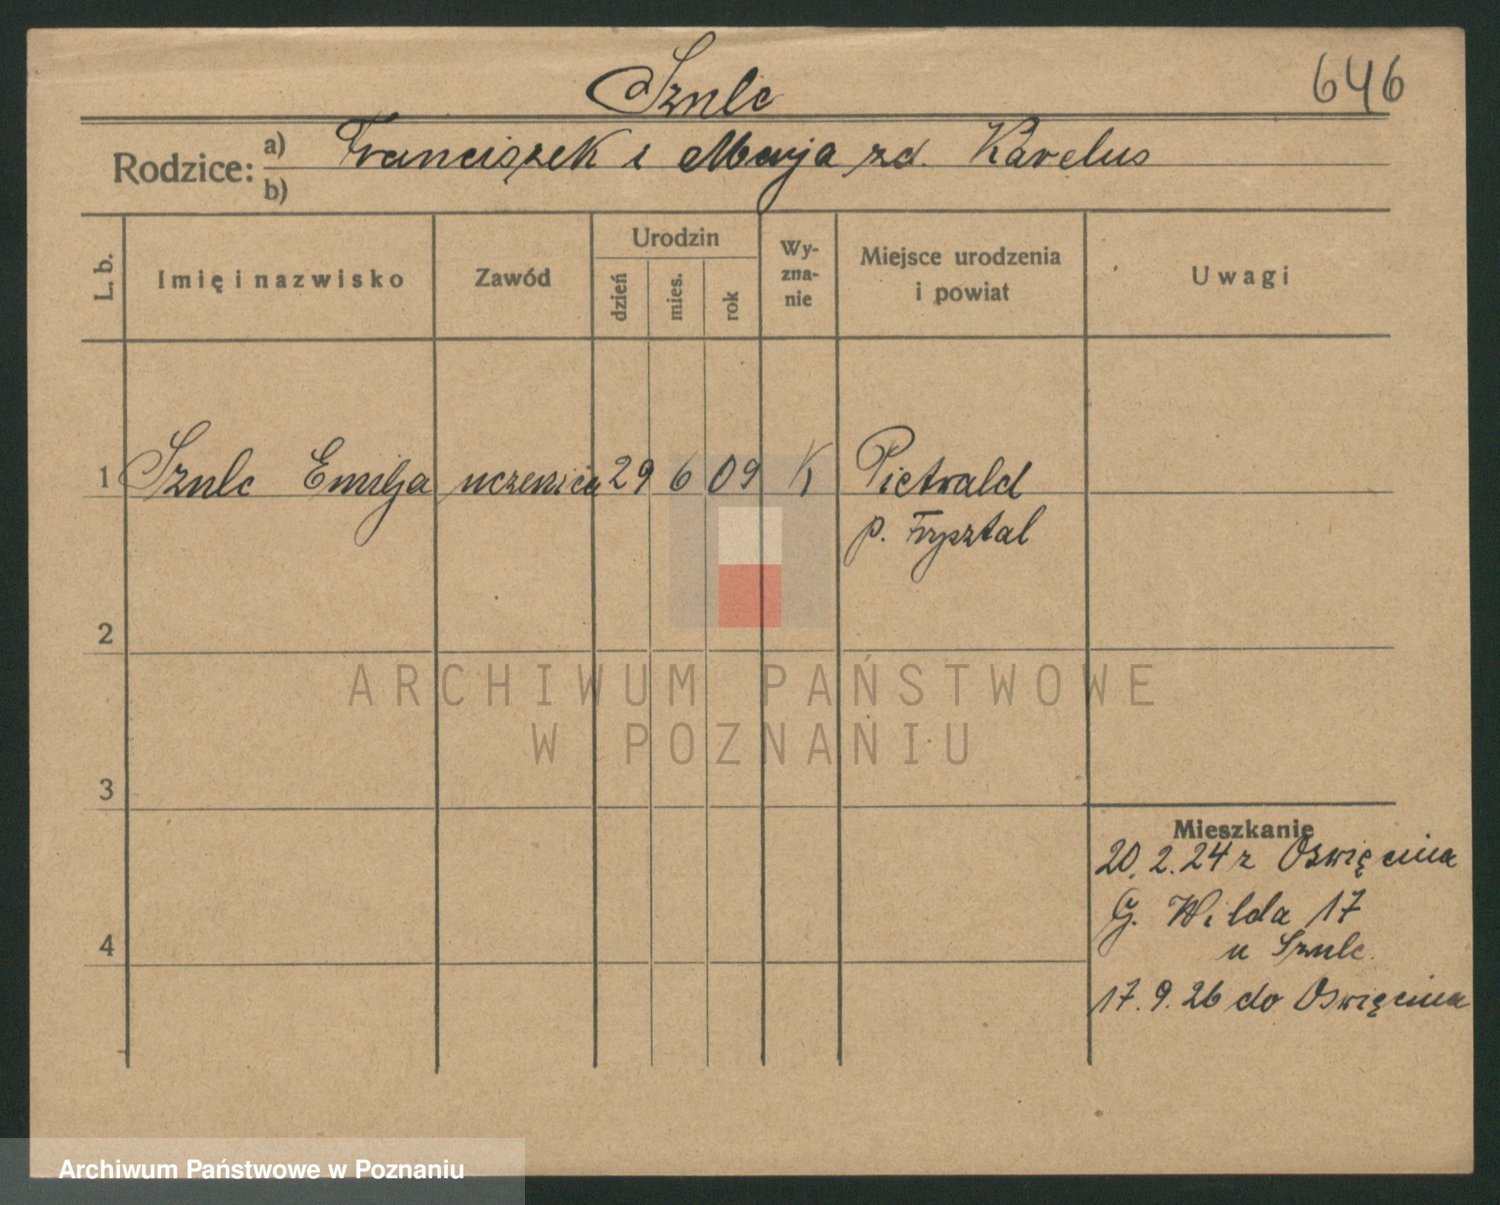 646
Szulc
Rodzice: a) Franciszek i Marja zd. Karelus
b)
L. b. Imię i nazwisko Zawód Urodzin dzień mies. rok Wy-zna-nie Miejsce urodzenia i powiat Uwagi
1 Szulc Emilja uczenica 29 6 09 K Pietwald
p. Frysztal
2
ARCHIWUM PAŃSTWOWE
W POZNANIU
3
Mieszkanie
20.2.24 z Oświęcima
G. Wilda 17
4
u Szulc.
17.9.26 do Oświęcima
Archiwum Państwowe w Poznaniu